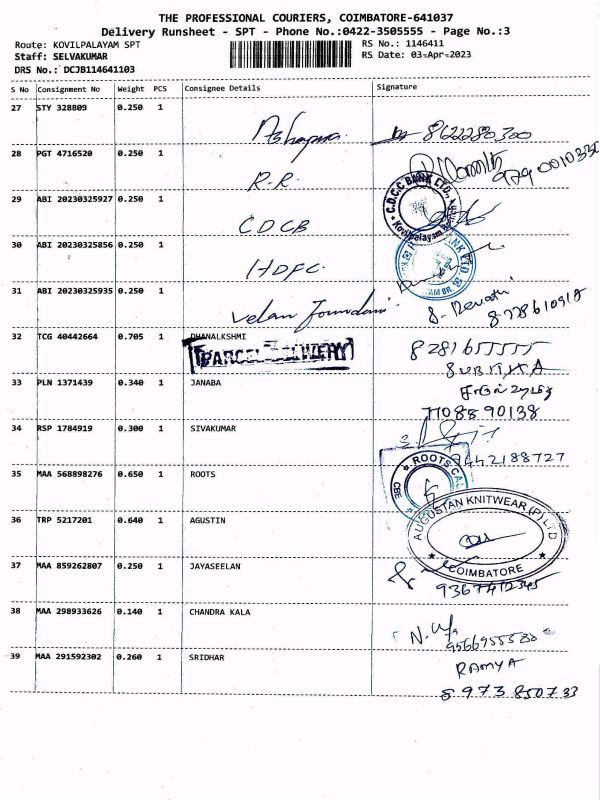 THE PROFESSIONAL COURIERS, COIMBATORE-641037
Delivery Runsheet - SPT - Phone No.:0422-3505555 - Page No.:3
Route: KOVILPALAYAM SPT RS No.: 1146411
Staff: SELVAKUMAR RS Date: 03-Apr-2023
DRS No.: DCJB114641103
S No Consignment No Weight PCS Consignee Details Signature
27 STY 328809 0.250 1 8622280300
28 PGT 4716520 0.250 1 R.R.
29 ABI 20230325927 0.250 1 CDCB
C.D.C.C BANK LTD.,
Kovilpalayam
30 ABI 20230325856 0.250 1 HDFC
31 ABI 20230325935 0.250 1 Velan
S. Revathi
32 TCG 40442664 0.705 1 DHANALKSHMI
PARCEL DELIVERY
33 PLN 1371439 0.340 1 JANABA
7708890138
34 RSP 1784919 0.300 1 SIVAKUMAR
9442188727
35 MAA 568898276 0.650 1 ROOTS
ROOTS
CBE
36 TRP 5217201 0.640 1 AGUSTIN
AUGUSTAN KNITWEAR (P) LTD
COIMBATORE
37 MAA 859262807 0.250 1 JAYASEELAN
9367412345
38 MAA 298933626 0.140 1 CHANDRA KALA
39 MAA 291592302 0.260 1 SRIDHAR
RAMYA
8973850733